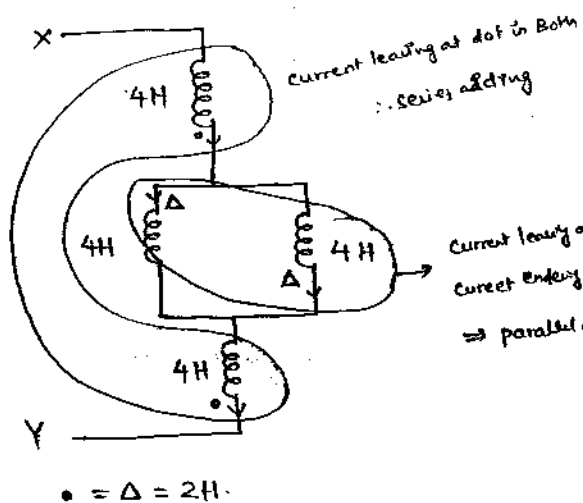 X
4H
current leaving at dot in Both
∴ series adding
Δ
4H
4H
Δ
current leaving
⇒ parallel
4H
Y
• = Δ = 2H.